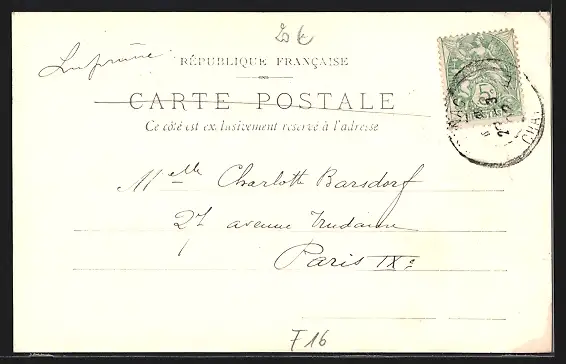 Imprimé
RÉPUBLIQUE FRANÇAISE
CARTE POSTALE
Ce côté est exclusivement réservé à l'adresse
Melle Charlotte Barsdorf
27 avenue Trudaine
Paris IXe
F16